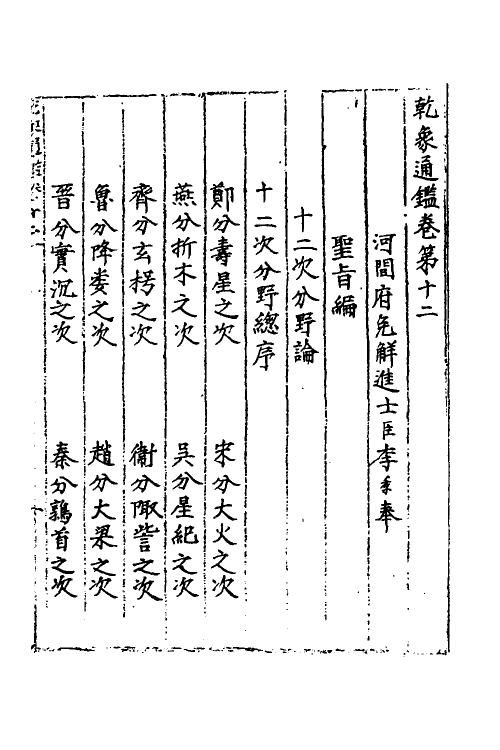 乾象通鑑卷第十二
河間府免解進士臣李季奉
聖旨編
十二次分野論
十二次分野總序
鄭分壽星之次　宋分大火之次
燕分析木之次　吳分星紀之次
齊分玄枵之次　衛分娵訾之次
魯分降婁之次　趙分大梁之次
晉分實沉之次　秦分鶉首之次